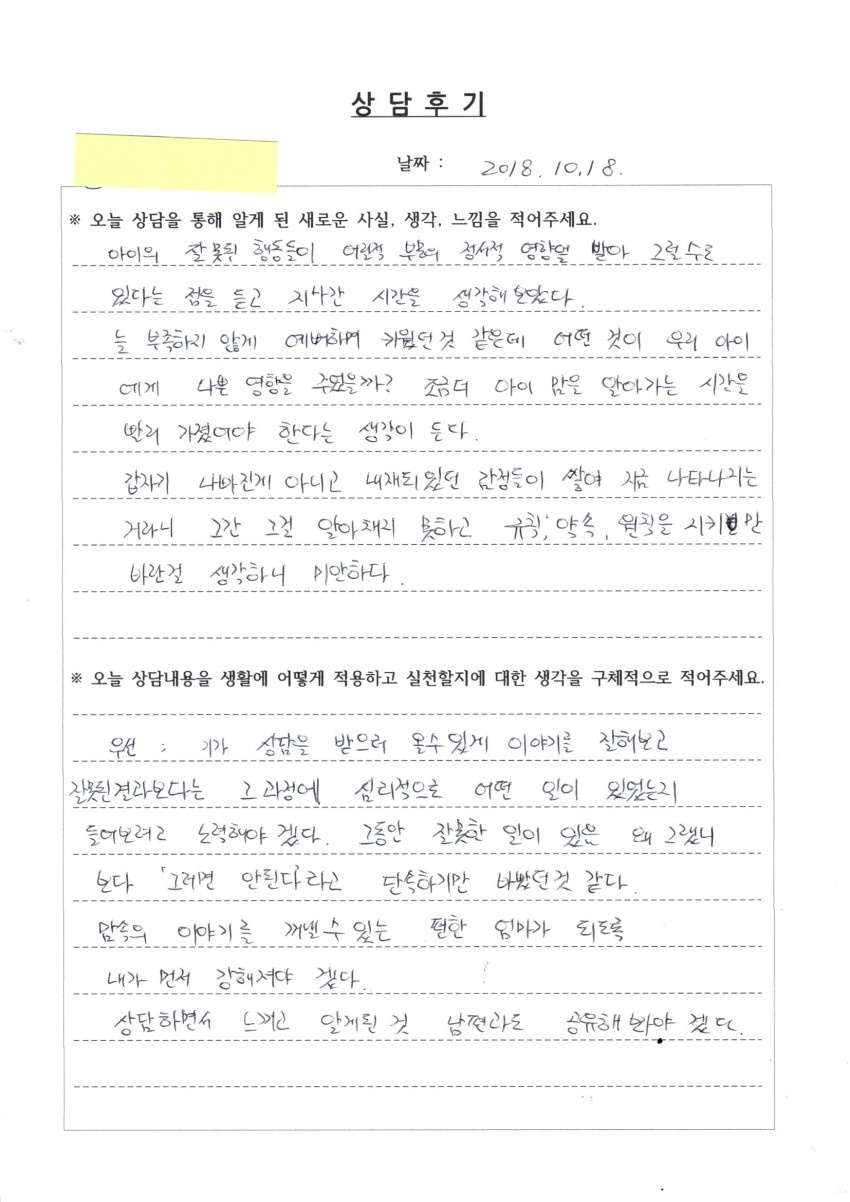 상 담 후 기
날짜 : 2018. 10. 18.
※ 오늘 상담을 통해 알게 된 새로운 사실, 생각, 느낌을 적어주세요.
아이의 잘못된 행동들이 어린적 부모의 정서적 영향을 받아 그럴수도
있다는 점을 듣고 지나간 시간을 생각해보았다.
늘 부족하지 않게 예뻐하며 키웠던것 같은데 어떤 것이 우리 아이
에게 나쁜 영향을 주었을까? 조금더 아이 맘을 알아가는 시간을
빨리 가졌어야 한다는 생각이 든다.
갑자기 나빠진게 아니고 내재되있던 감정들이 쌓여 지금 나타나지는
거라니 그간 그걸 알아채지 못하고 규칙, 약속, 원칙을 지키기만
바란걸 생각하니 미안하다.
※ 오늘 상담내용을 생활에 어떻게 적용하고 실천할지에 대한 생각을 구체적으로 적어주세요.
우선 : 상담을 받으러 올수있게 이야기를 잘해보고
잘못된결과보다는 그 과정에 심리적으로 어떤 일이 있었는지
들어보려고 노력해야 겠다. 그동안 잘못한 일이 있은 왜 그랬니
보다 '그러면 안된다'라고 단속하기만 바빴던것 같다.
맘속의 이야기를 꺼낼수 있는 편한 엄마가 되도록
내가 먼저 강해져야 겠다.
상담하면서 느끼고 알게된 것 남편과도 공유해 봐야 겠다.